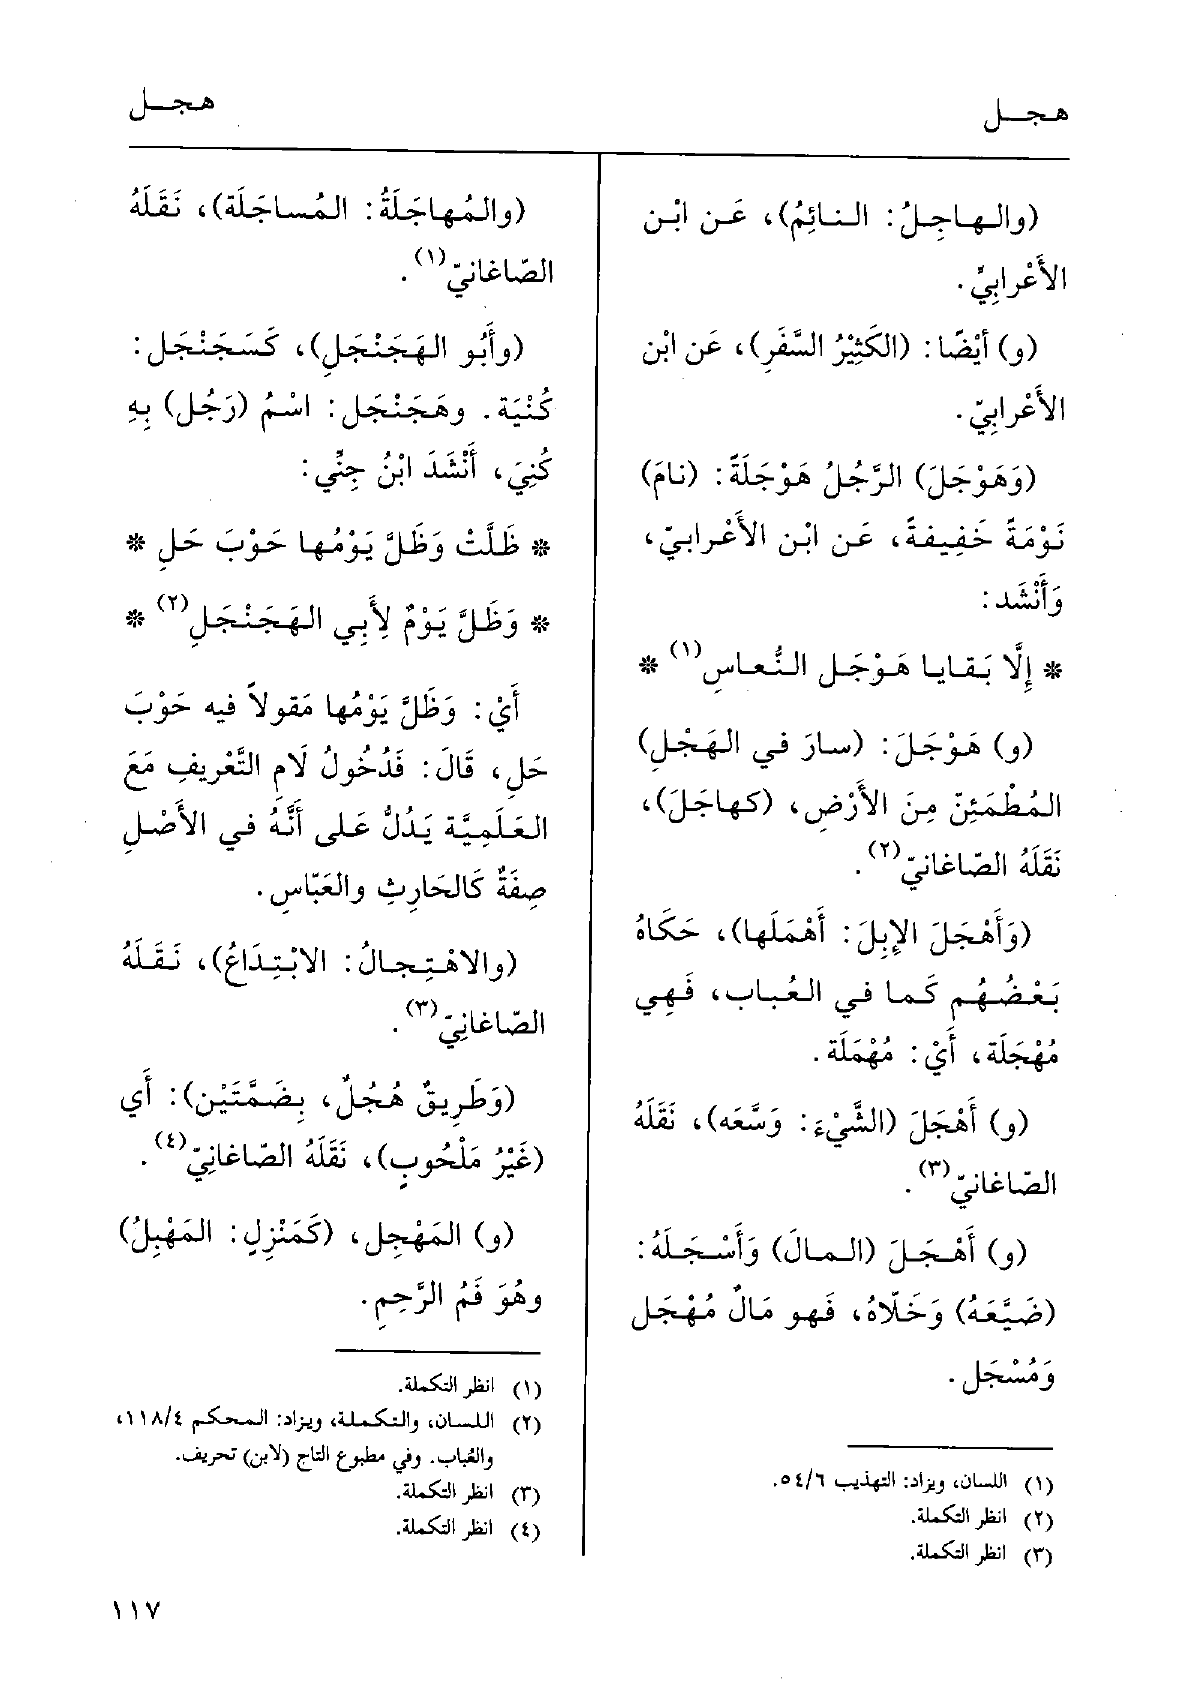 هجـل
هجـل
(والهاجِلُ: النائِمُ)، عَن ابْن
الأَعْرابِيِّ.
(و) أَيْضًا: (الكَثِيْرُ السَّفَرِ)، عَن ابْن
الأَعْرابِيّ.
(وَهَوْجَلَ) الرَّجُلُ هَوْجَلَةً: (نامَ)
نَوْمَةً خَفِيفةً، عَن ابْن الأَعْرابيّ،
وَأَنْشَد:
* إِلَّا بَقايا هَوْجَل النُّعاسِ(١) *
(و) هَوْجَلَ: (سارَ في الهَجْلِ)
المُطْمَئِنّ مِنَ الأَرْضِ، (كهاجَلَ)،
نَقَلَهُ الصّاغانيّ(٢).
(وَأَهْجَلَ الإِبِلَ: أَهْمَلَها)، حَكَاهُ
بَعْضُهُم كَما في العُباب، فَهِي
مُهْجَلَة، أَيْ: مُهْمَلَة.
(و) أَهْجَلَ (الشَّيْءَ: وَسَّعَه)، نَقَلَهُ
الصّاغانيّ(٣).
(و) أَهْجَلَ (المالَ) وَأَسْجَلَهُ:
(ضَيَّعَهُ) وَخَلّاهُ، فَهو مَالٌ مُهْجَل
وَمُسْجَل.
(١) اللسان، ويزاد: التهذيب ٥٤/٦.
(٢) انظر التكملة.
(٣) انظر التكملة.
(والمُهاجَلَةُ: المُساجَلَة)، نَقَلَهُ
الصّاغانيّ(١).
(وأَبُو الهَجَنْجَلِ)، كَسَجَنْجَل:
كُنْيَة. وهَجَنْجَل: اسْمُ (رَجُل) بِهِ
كُنِيَ، أَنْشَدَ ابْنُ جِنِّي:
* ظَلَّتْ وَظَلَّ يَوْمُها حَوْبَ حَلِ *
* وَظَلَّ يَوْمٌ لِأَبِي الهَجَنْجَلِ(٢) *
أَيْ: وَظَلَّ يَوْمُها مَقولاً فيه حَوْبَ
حَلِ، قَالَ: فَدُخُولُ لَامِ التَّعْريفِ مَعَ
العَلَمِيَّة يَدُلُّ عَلى أَنَّهُ في الأَصْلِ
صِفَةٌ كَالحَارِثِ والعَبّاسِ.
(والاهْتِجالُ: الابْتِدَاعُ)، نَقَلَهُ
الصّاغانِيّ(٣).
(وَطَرِيقٌ هُجُلٌ، بِضَمَّتَيْن): أَي
(غَيْرُ مَلْحُوبٍ)، نَقَلَهُ الصّاغانِيّ(٤).
(و) المَهْجِل، (كَمَنْزِلٍ: المَهْبِلُ)
وهُوَ فَمُ الرَّحِمِ.
(١) انظر التكملة.
(٢) اللسان، والتكملة، ويزاد: المحكم ١١٨/٤،
والعُباب. وفي مطبوع التاج (لابن) تحريف.
(٣) انظر التكملة.
(٤) انظر التكملة.
١١٧